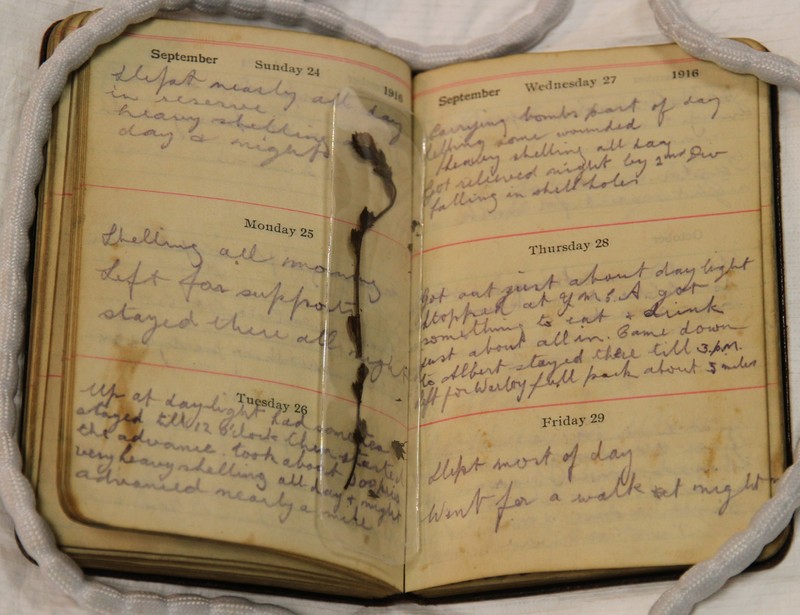 September Sunday 24 1916
Slept nearly all day
in reserve
heavy shelling
day & night
Monday 25
Shelling all morning
Left for supports
stayed there all night
Tuesday 26
Up at daylight had some tea
stayed till 12 o'clock then started
the advance. took about
very heavy shelling all day & night
advanced nearly a mile
September Wednesday 27 1916
Carrying bombs part of day
helping some wounded
Heavy shelling all day
Got relieved night by 2nd Div
falling in shell holes
Thursday 28
Got out just about daylight
Stopped at Y.M.C.A got
something to eat & drink
just about all in. Came down
to Albert stayed there till 3 p.m.
left for Warloy full pack about 5 miles
Friday 29
Slept most of day
Went for a walk at night